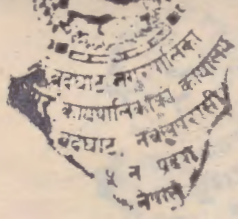 बर्दघाट नगरपालिका
कार्यपालिकाको कार्यालय
बर्दघाट, नवलपरासी
न प्रदेश
नेपाल